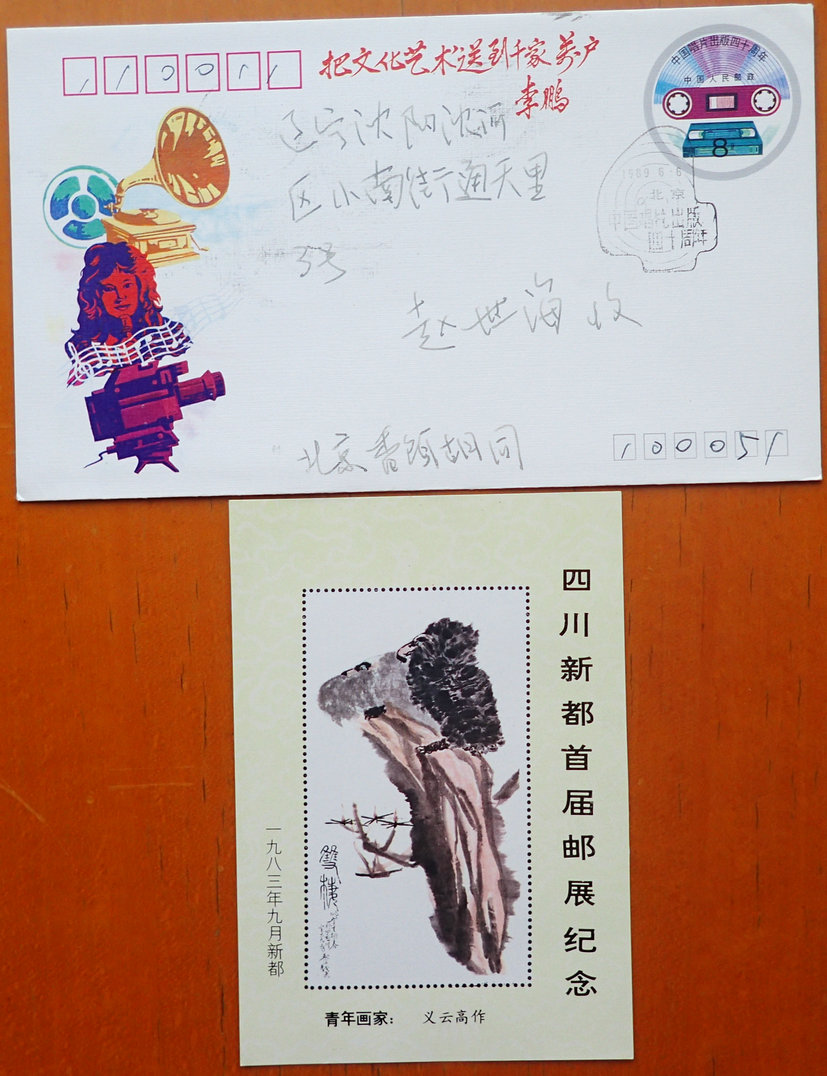 110011
把文化艺术送到千家万户
李鹏
中国唱片出版四十周年
中国人民邮政
8分
1989.6.6
北京
中国唱片出版
四十周年
辽宁沈阳沈河
区小南街通天里
3号
赵世海收
北京香饵胡同
100051
四川新都首届邮展纪念
雙棲
一九八三年九月新都
青年画家： 义云高作